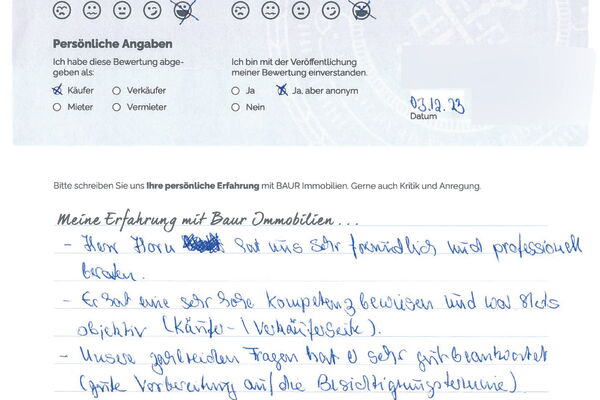 Persönliche Angaben
Ich habe diese Bewertung abge-
geben als:
Käufer
Verkäufer
Mieter
Vermieter
Ich bin mit der Veröffentlichung
meiner Bewertung einverstanden.
Ja
Ja, aber anonym
Nein
03.12.23
Datum
Bitte schreiben Sie uns Ihre persönliche Erfahrung mit BAUR Immobilien. Gerne auch Kritik und Anregung.
Meine Erfahrung mit Baur Immobilien...
- Herr Horn hat uns sehr freundlich und professionell
beraten.
- Er hat eine sehr hohe Kompetenz bewiesen und war stets
objektiv (Käufer-/Verkäuferseite).
- Unsere zahlreichen Fragen hat er sehr gut beantwortet
(gute Vorbereitung auf die Besichtigungstermine).